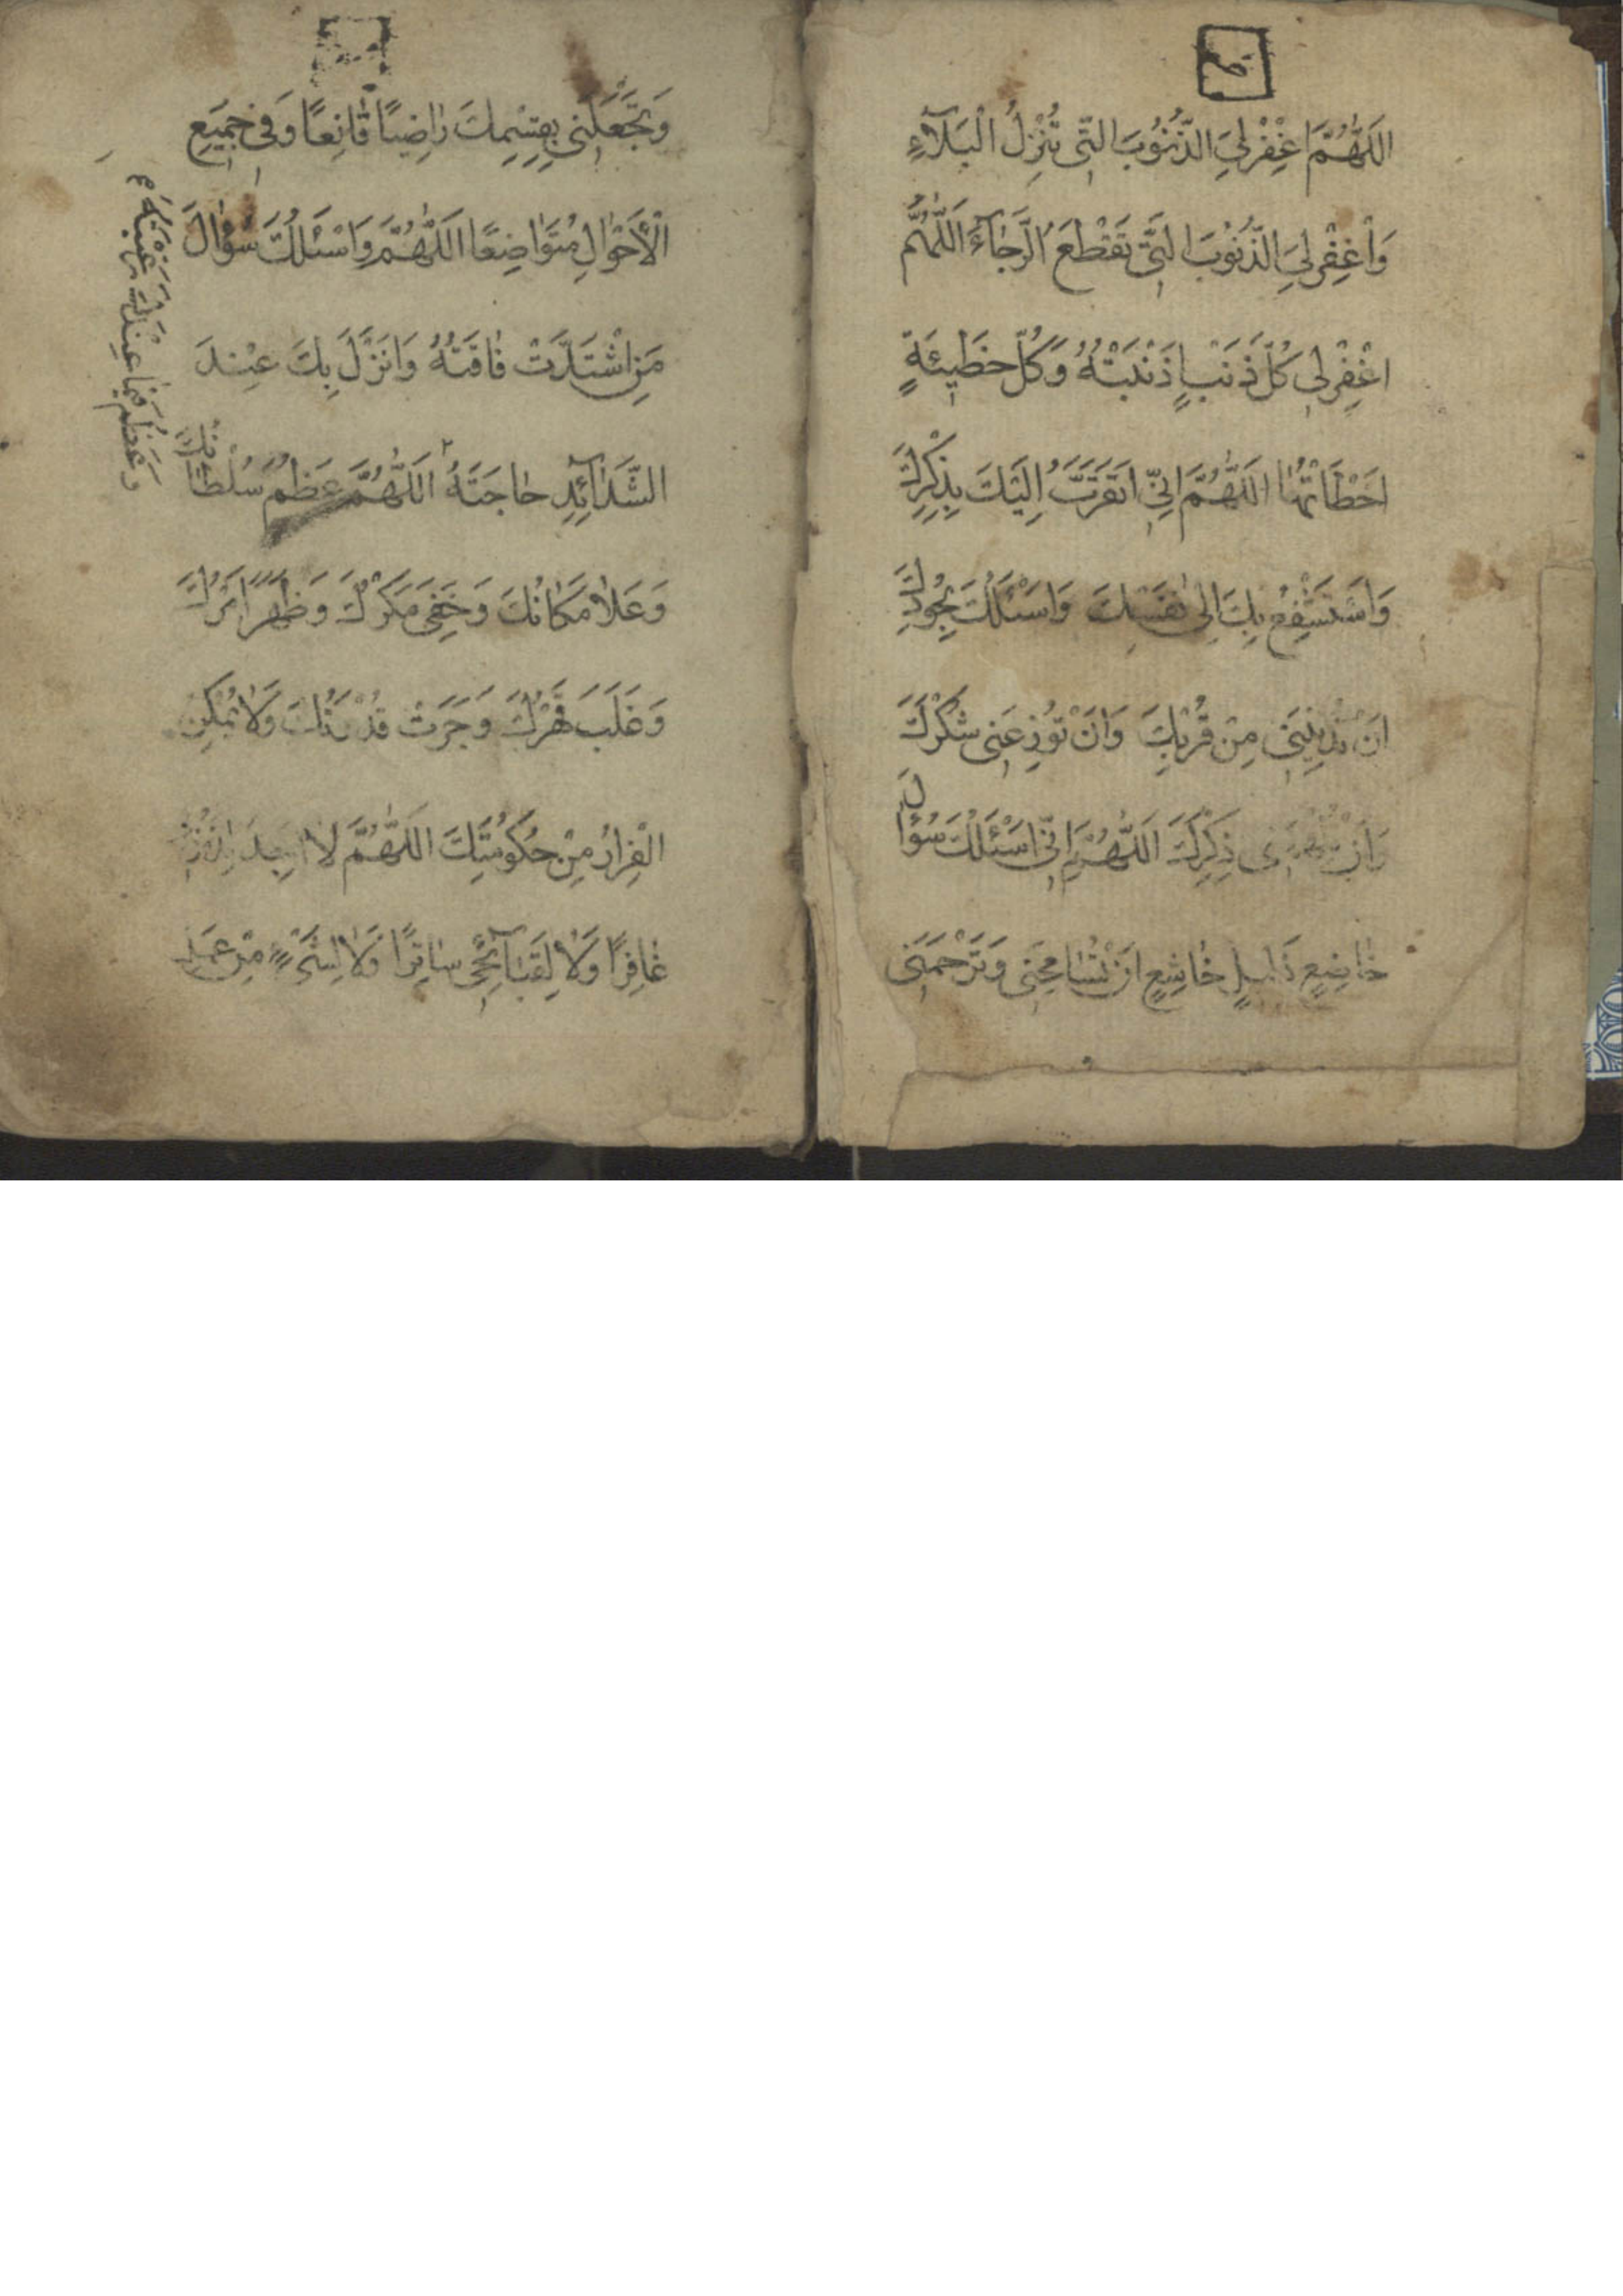 اَللّٰهُمَّ اغْفِرْلِيَ الذُّنُوبَ الَّتِي تُنْزِلُ الْبَلَآءَ
وَاغْفِرْلِيَ الذُّنُوبَ الَّتِي تَقْطَعُ الرَّجَآءَ اَللّٰهُمَّ
اغْفِرْلِي كُلَّ ذَنْبٍ اَذْنَبْتُهُ وَكُلَّ خَطِيئَةٍ
اَخْطَاْتُهَا اَللّٰهُمَّ اِنِّي اَتَقَرَّبُ اِلَيْكَ بِذِكْرِكَ
وَاَسْتَشْفِعُ بِكَ اِلىٰ نَفْسِكَ وَاَسْئَلُكَ بِجُودِكَ
اَنْ تُدْنِيَنِي مِنْ قُرْبِكَ وَاَنْ تُوزِعَنِي شُكْرَكَ
وَاَنْ تُلْهِمَنِي ذِكْرَكَ اَللّٰهُمَّ اِنِّي اَسْئَلُكَ سُؤَالَ
خَاضِعٍ ذَلِيلٍ خَاشِعٍ اَنْ تُسَامِحَنِي وَتَرْحَمَنِي
وَتَجْعَلَنِي بِقِسْمِكَ رَاضِيًا قَانِعًا وَفِي جَمِيعِ
الْاَحْوَالِ مُتَوَاضِعًا اَللّٰهُمَّ وَاَسْئَلُكَ سُؤَالَ
مَنِ اشْتَدَّتْ فَاقَتُهُ وَاَنْزَلَ بِكَ عِنْدَ
الشَّدَآئِدِ حَاجَتَهُ ٢ اَللّٰهُمَّ عَظُمَ سُلْطَانُكَ
وَعَظُمَ فِيمَا عِنْدَكَ رَغْبَتُهُ
وَعَلَا مَكَانُكَ وَخَفِيَ مَكْرُكَ وَظَهَرَ اَمْرُكَ
وَغَلَبَ قَهْرُكَ وَجَرَتْ قُدْرَتُكَ وَلَا يُمْكِنُ
الْفِرَارُ مِنْ حُكُومَتِكَ اَللّٰهُمَّ لَا اَجِدُ لِذُنُوبِي
غَافِرًا وَلَا لِقَبَآئِحِي سَاتِرًا وَلَا لِشَيْءٍ مِنْ عَمَلِي